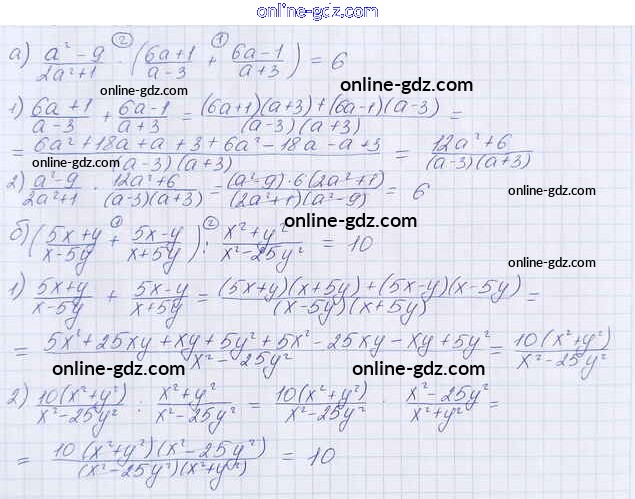 online-gdz.com
а) (a² - 9)/(2a²+1) · ((6a+1)/(a-3) + (6a-1)/(a+3)) = 6
② ①
online-gdz.com online-gdz.com
1) (6a+1)/(a-3) + (6a-1)/(a+3) = ((6a+1)(a+3)+(6a-1)(a-3))/((a-3)(a+3)) =
= (6a²+18a+a+3+6a²-18a-a+3)/((a-3)(a+3)) = (12a²+6)/((a-3)(a+3))
online-gdz.com online-gdz.com
2) (a²-9)/(2a²+1) · (12a²+6)/((a-3)(a+3)) = ((a²-9)·6(2a²+1))/((2a²+1)(a²-9)) = 6
online-gdz.com
online-gdz.com
б) ((5x+y)/(x-5y) + (5x-y)/(x+5y)) : (x²+y²)/(x²-25y²) = 10
① ②
online-gdz.com
1) (5x+y)/(x-5y) + (5x-y)/(x+5y) = ((5x+y)(x+5y)+(5x-y)(x-5y))/((x-5y)(x+5y)) =
= (5x²+25xy+xy+5y²+5x²-25xy-xy+5y²)/(x²-25y²) = (10(x²+y²))/(x²-25y²)
online-gdz.com online-gdz.com
2) (10(x²+y²))/(x²-25y²) : (x²+y²)/(x²-25y²) = (10(x²+y²))/(x²-25y²) · (x²-25y²)/(x²+y²) =
online-gdz.com
= (10(x²+y²)(x²-25y²))/((x²-25y²)(x²+y²)) = 10
online-gdz.com
online-gdz.com